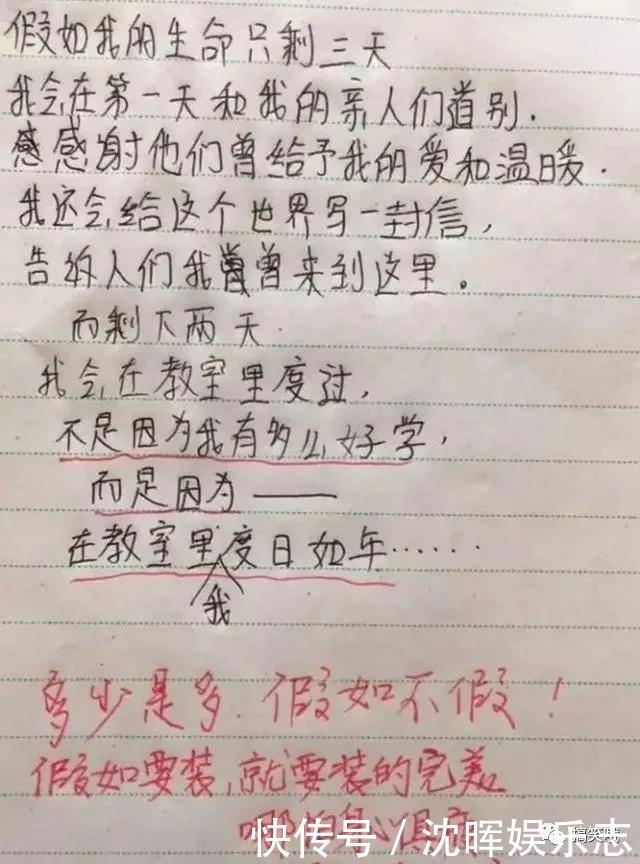 假如我的生命只剩三天
我会在第一天和我的亲人们道别.
感感谢他们曾给予我的爱和温暖.
我还会给这个世界写一封信,
告诉人们我曾曾来到这里。
而剩下两天.
我会在教室里度过,
不是因为我有多么好学,
而是因为——
在教室里度日如年……
我
多少是多.假如不假!
假如要装,就要装的完美
哪怕是
快传号/沈晖娱乐志
搞笑